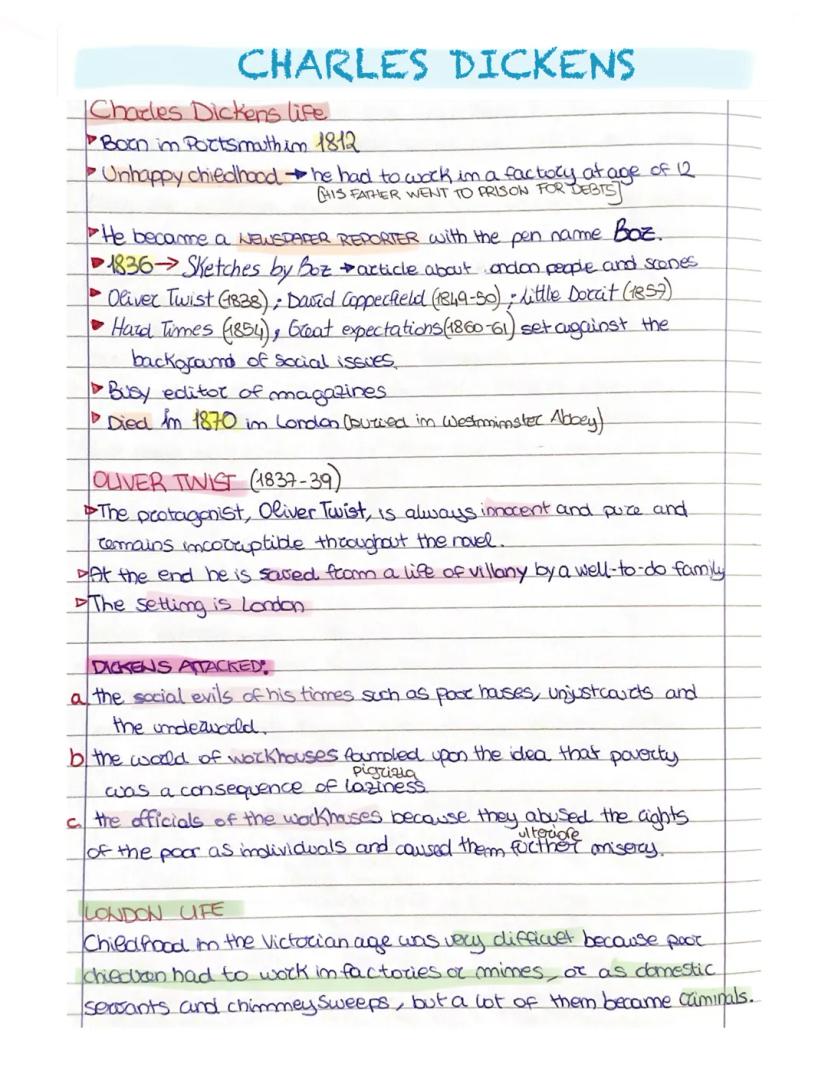 CHARLES DICKENS
Charles Dickens life
▸Born in Portsmouth in 1812
▸Unhappy chiedhood → he had to work in a factory at age of 12
[HIS FATHER WENT TO PRISON FOR DEBTS]
▸He became a NEWSPAPER REPORTER with the pen name Boz.
▸1836→ Sketches by Boz → article about ondon people and scenes
▸Oliver Twist (1838) ; David Copperfield (1849-50) ; Little Dorrit (1857)
▸Hard Times (1854), Great expectations(1860-61) set against the
background of social issues.
▸Busy editor of magazines
▸Died in 1870 in London (buried in Westminster Abbey)
OLIVER TWIST (1837-39)
▸The protagonist, Oliver Twist, is always innocent and pure and
remains incorruptible throughout the novel.
▸At the end he is saved from a life of villany by a well-to-do family
▸The setting is London
DICKENS ATTACKED:
a the social evils of his times such as poor houses, unjust courts and
the underworld.
b the world of workhouses founded upon the idea that poverty
pigrizia
was a consequence of laziness
c the officials of the workhouses because they abused the rights
ulteriore
of the poor as individuals and caused them further misery.
LONDON LIFE
Childhood in the Victorian age was very difficult because poor
children had to work in factories or mines, or as domestic
servants and chimney sweeps, but a lot of them became criminals.